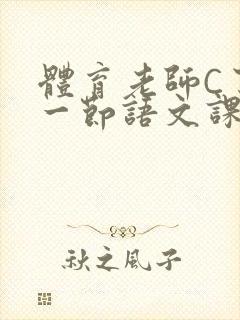 體育老師C
一節語文課
秋之風子